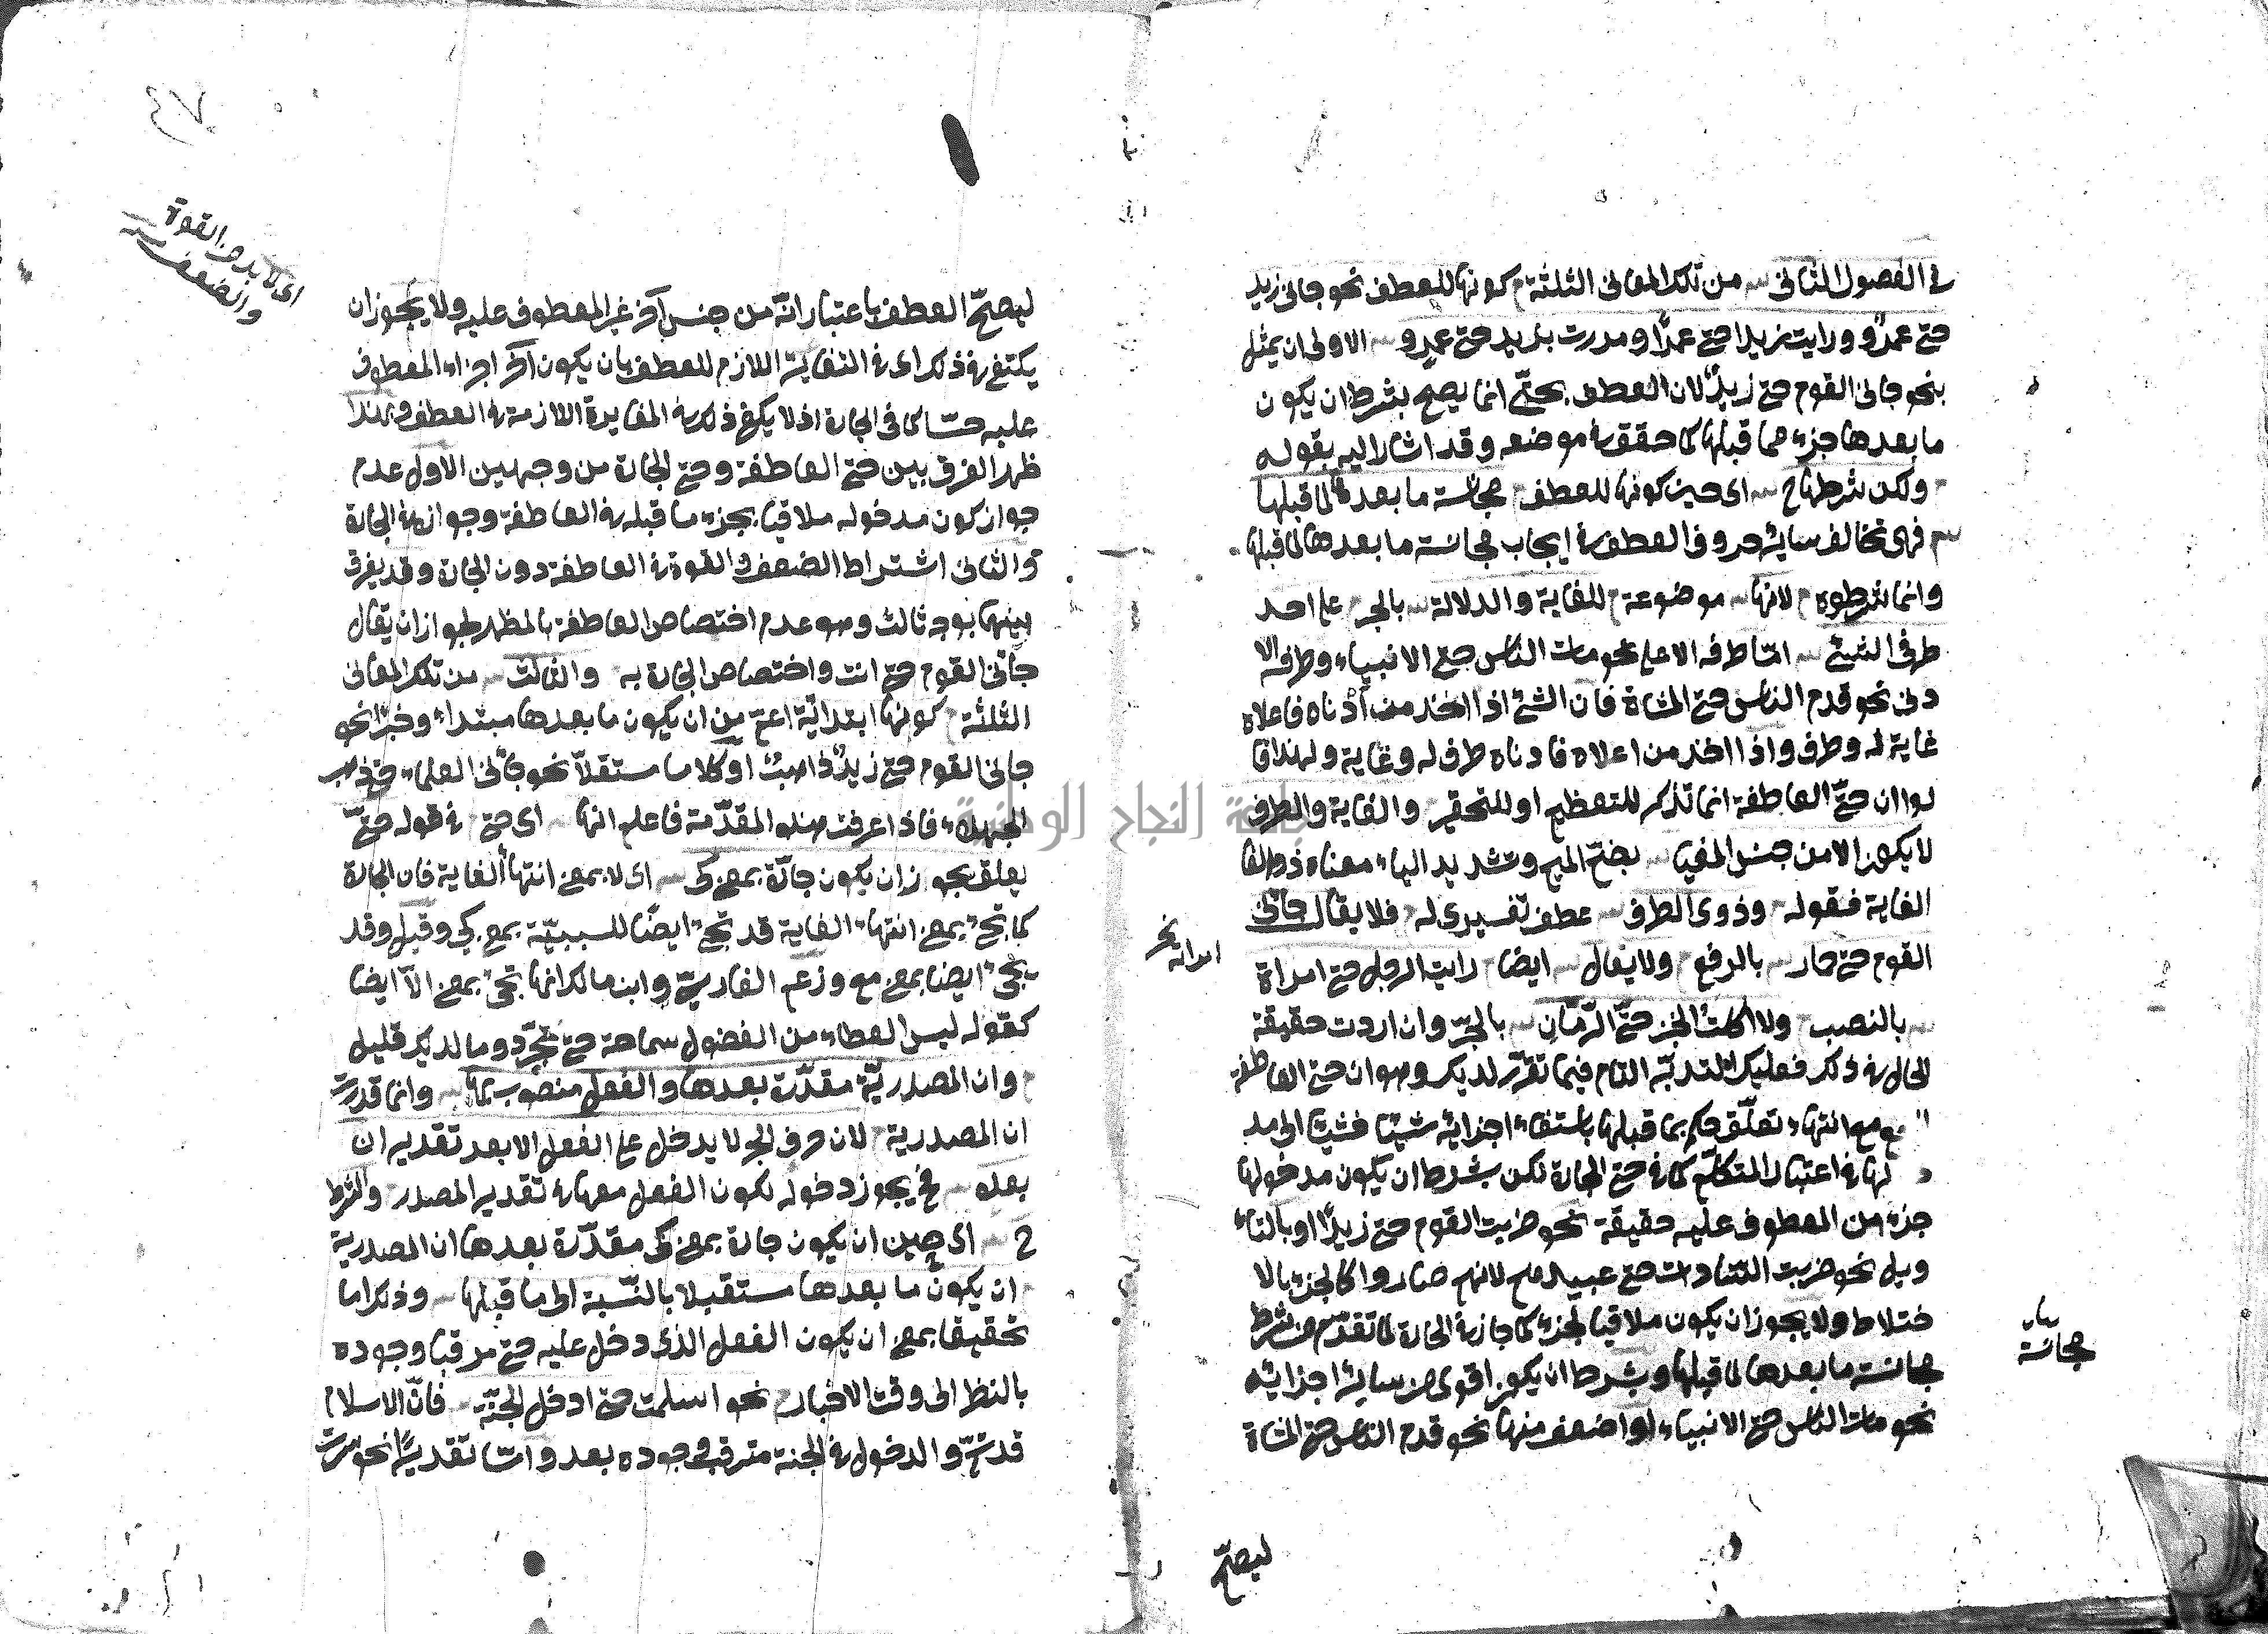 في الفصول الثاني من تلك المعاني الثلثة كونها للعطف نحو جاني زيد
حتى عمرٌو ورايت زيدا حتى عمرًا ومررت بزيد حتى عمرٍو الاولى ان يمثل
بنحو جاني القوم حتى زيدٌ لان العطف بحتّى انما يصح بشرط ان يكون
ما بعدها جزء مما قبلها كما حقق في موضعه وقد اشار اليه بقوله
ولكن شرطها ح اى حين كونها للعطف مجانسة ما بعدها لما قبلها
فهى تخالف سائر حروف العطف في ايجاب مجانسة ما بعدها لما قبلها
وانما شرطوه لانها موضوعة للغاية والدلالة بالجر على احد
طرفى الشئ امّا طرفه الاعلى نحو مات الناس حتى الانبياء وطرفه الا
دنى نحو قدم الناس حتى المشاة فان الشئ اذا اخذ من أدناه فاعلاه
غاية له وطرف واذا اخذ من اعلاه فادناه طرف له وغاية ولهذا قا
لوا ان حتّى العاطفة انما تذكر للتعظيم او للتحقير والغاية والطرف
لا يكون الا من جنس المغيا بضم الميم وتشديد الياء معناه ذو الغا
الغاية فقوله وذوى الطرف عطف تفسيرى له فلا يقال جائنى
القوم حتى حمار بالرفع ولا يقال ايضا رايت الرجل حتى امراة
بالنصب ولا اكلتُ الخبز حتّى الرّمّانِ بالجرّ وان اردت حقيقة
الحال في ذكر فعليك التدبّر التام فيما تقرّر لديك وهو ان حتى العاطفة
مع انتهاء تعلّق حكم بما قبلها باستفاء اجزائه شيئا فشيئا الى مد
لها في اعتبار المتكلّم كما في حتى الجارة لكن بشرط ان يكون مدخولها
جزء من المعطوف عليه حقيقة نحو ضربت القوم حتى زيدًا او بالتاء
ويل نحو ضربت السّادات حتى عبيدهم لانهم صاروا كالجزء بالا
ختلاط ولا يجوز ان يكون ملاقيا لجزء كما جاز في الجارة لما تقدّم من شرط
مجانسة ما بعدها لما قبلها وبشرط ان يكون اقوى من سائر اجزائه
نحو مات الناس حتى الانبياء او اضعف منها نحو قدم الناس حتى المشاة
مجانسة
ليصحّ
ليصحّ العطف باعتبار انّه من جنس آخر غير المعطوف عليه ولا يجوز ان
يكتفى في ذلك اى في التغاير اللازم للعطف بان يكون آخر اجزاء المعطوف
عليه حسّا كما فى الجارة اذ لا يكفى ذلك في المغايرة اللازمة في العطف وبهذا
ظهر الفرق بين حتى العاطفة وحتى الجارة من وجهين الاول عدم
جواز كون مدخوله ملاقيا بجزء ما قبله في العاطفة وجوازه في الجارة
والثانى اشتراط الضعف والقوة في العاطفة دون الجارة وقد يفرق
بينهما بوجه ثالث وهو عدم اختصاص العاطفة بالمظهر لجواز ان يقال
جائنى القوم حتى انت واختصاص الجارة به والثالث من تلك المعانى
الثلثة كونها ابتدائيّة اعمّ من ان يكون ما بعدها مبتداء وخبرًا نحو
جانى القوم حتى زيدٌ ذاهبٌ او كلاما مستقلاّ نحو جائنى العلماء حتى ذهب
الجهلاء فاذا عرفت هذه المقدّمة فاعلم انها اى حتى في قوله حتّى
يعلق يجوز ان يكون جارّة بمعنى كى اى لا بمعنى انتهاء الغاية فان الجارة
كما تجئ بمعنى انتهاء الغاية قد تجئ ايضًا للسببيّة بمعنى كى وقيل وقد
يجئ ايضا بمعنى مع وزعم الفارسىّ وابن مالك انها تجئ بمعنى الاّ ايضا
كقوله ليس العطاء من الفضول سماحة حتى تجوّد وما لديك قليل
وان المصدريّة مقدّرة بعدها والفعل منصوب بها وانما قدرت
ان المصدرية لان حرف الجر لا يدخل على الفعل الا بعد تقدير ان
بعده فح يجوز دخوله لكون الفعل معها في تقدير المصدر والشرط
ح اى حين ان يكون جارة بمعنى كى مقدّرة بعدها ان المصدرية
ان يكون ما بعدها مستقبلا بالنّسبة الى ما قبلها وذلك اما
تحقيقا بمعنى ان يكون الفعل الذى دخل عليه حتى مرقبا وجوده
بالنظر الى وقت الاخبار نحو اسلمت حتى ادخل الجنّة فانّ الاسلام
قد تمّ والدخول في الجنة مترقب وجوده بعد وامّا تقديرًا نحو سرت
اى لا بد من القوة
والضعف
جامعة النجاح الوطنية